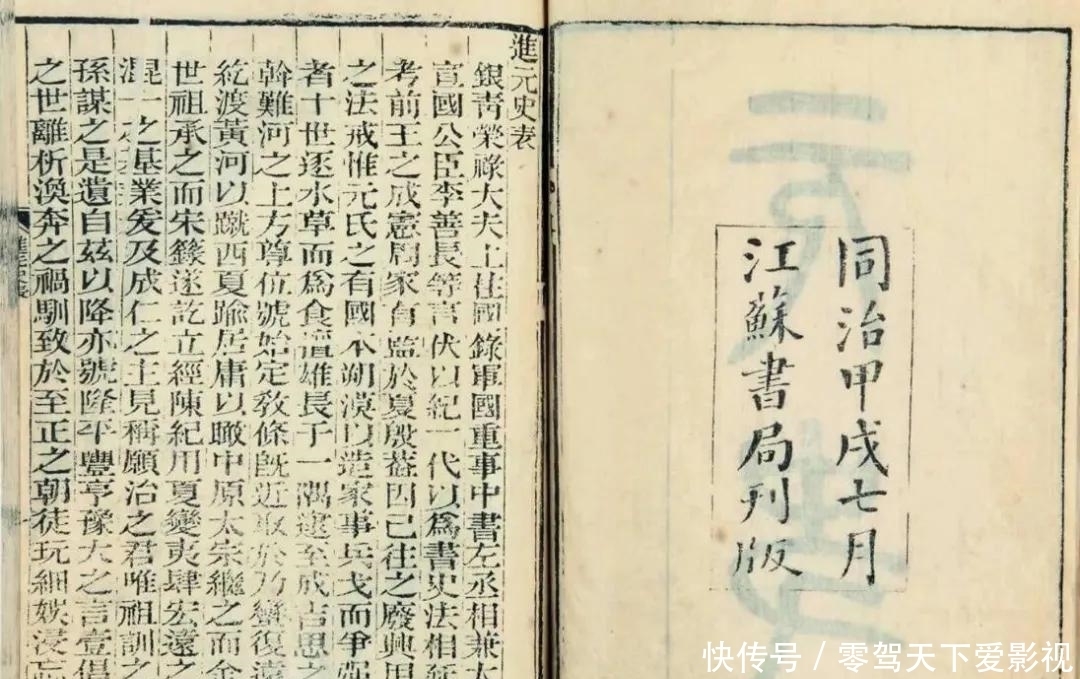 同治甲戌七月
江蘇書局刊版
進元史表
銀青榮祿大夫上柱國錄軍國重事中書左丞相兼太
宣國公臣李善長等言伏以紀一代以爲書史法相沿
考前王之成憲周家有監於夏殷葢因已往之廢興用
之法戒惟元氏之有國本朔漠以造家事兵戈而爭强
者十世逐水草而爲食擅雄長于一隅逮至成吉思之
斡難河之上方尊位號始定教條旣近取於乃蠻復遠
紇渡黃河以蹴西夏踰居庸以瞰中原太宗繼之而金
世祖承之而宋籙遂訖立經陳紀用夏變夷肆宏遠之
混一之基業爰及成仁之主見稱願治之君唯祖訓之
孫謀之是遺自茲以降亦號隆平豐亨豫大之言壹倡
之世離析渙奔之禍馴致於至正之朝徒玩細娛浸忘
快传号 / 零驾天下爱影视